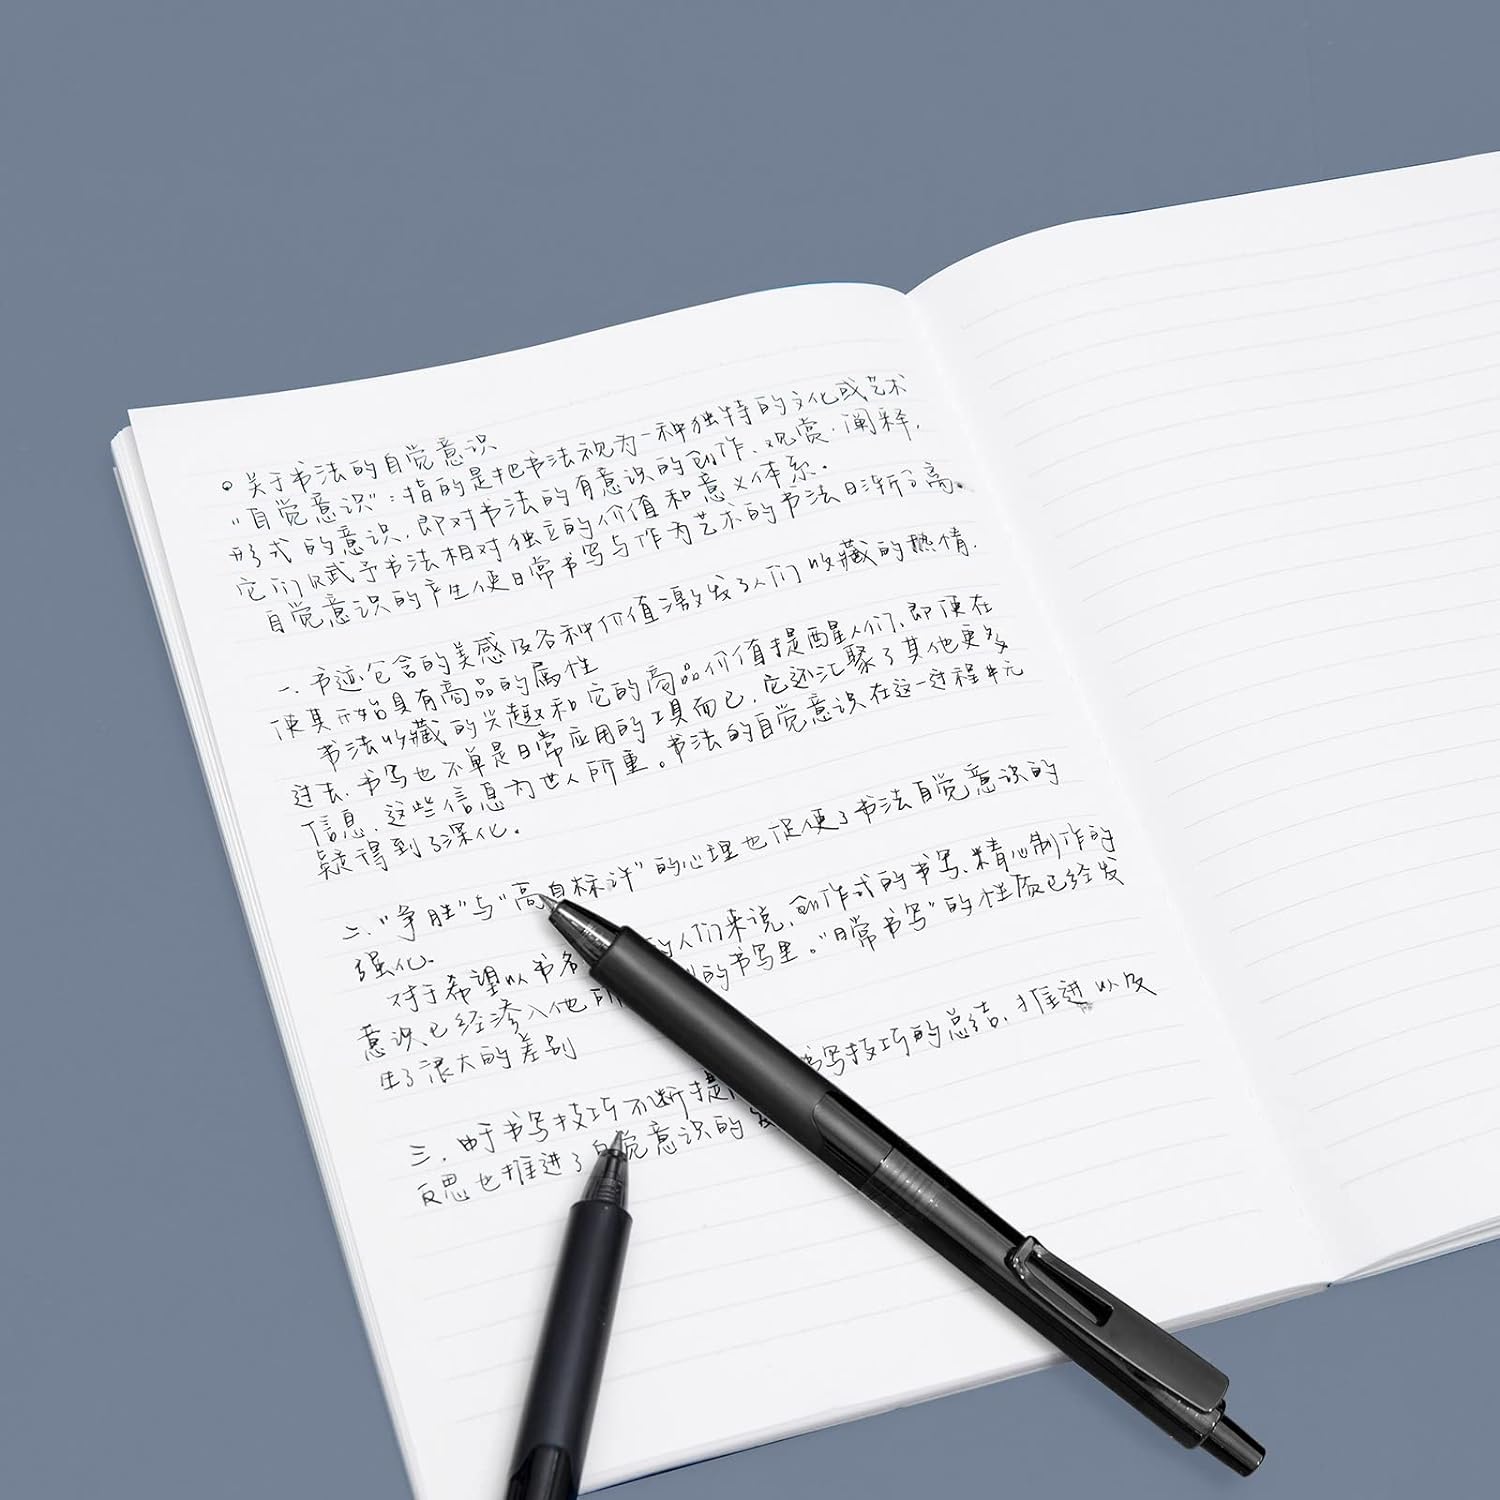 关于书法的自觉意识
“自觉意识”：指的是把书法视为一种独特的文化或艺术
形式的意识，即对书法的有意识的创作、观赏、阐释，
它们赋予书法相对独立的价值和意义体系。
自觉意识的产生使日常书写与作为艺术的书法日渐分离。
一、书迹包含的美感及各种价值激发了人们收藏的热情，
使其开始具有商品的属性
书法收藏的兴趣和它的商品价值提醒人们，即便在
过去，书写也不单是日常应用的工具而已，它还汇聚了其他更多
信息，这些信息为世人所重。书法的自觉意识在这一过程中无
疑得到了深化。
二、“争胜”与“高自标许”的心理也促使了书法自觉意识的
强化、
对于希望以书名 的人们来说，创作式的书写、精心制作的
意识已经渗入他所 的书写里。“日常书写”的性质已经发
生了很大的差别
三、由于书写技巧不断提 书写技巧的总结、推进以及
反思也推进了自觉意识的